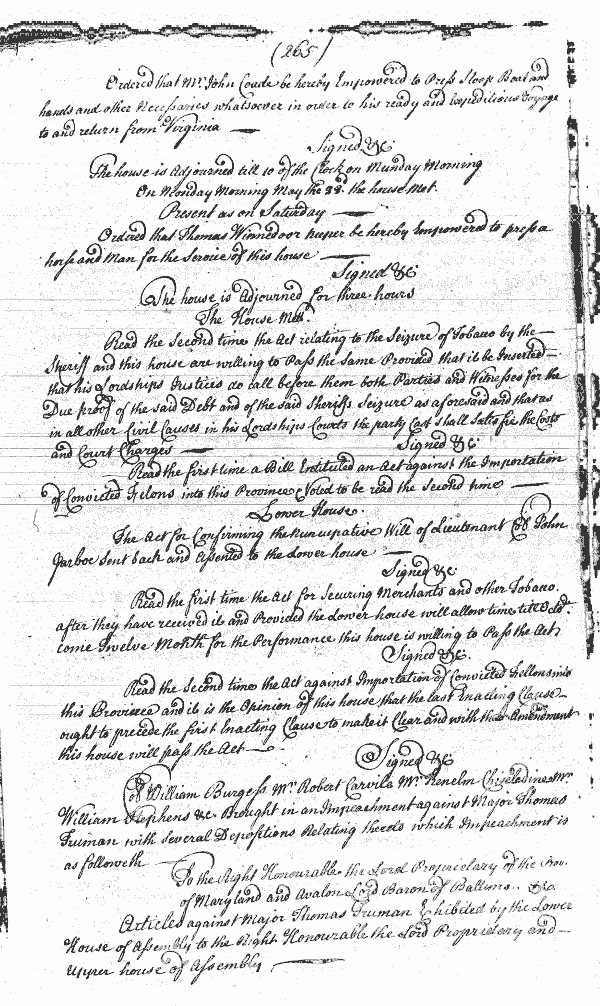 (265)
Ordered that Mr. John Coade be hereby Empowered to Press Sloop Boat and
hands and other Necessaries whatsoever in order to his ready and Expeditious Voyage
to and return from Virginia
Signed &c
The house is Adjourned till 10 of the Clock on Munday Morning
On Monday Morning May the 22. the house Met.
Present as on Saturday
Ordered that Thomas Winne door keeper be hereby Empowered to press a
horse and Man for the Service of this house
Signed &c
The house is Adjourned for three hours
The House Met.
Read the Second time the Act relating to the Seizure of Tobacco by the
Sheriff and this house are willing to Pass the Same Provided that it be Inserted
that his Lordships Justices do call before them both Parties and Witnesses for the
Due proof of the said Debt and of the said Sheriffs Seizure as aforesaid and that as
in all other Civil Causes in his Lordships Courts the party Cast shall Satisfie the Costs
and Court Charges
Signed &c
Read the first time a Bill Entituled an Act against the Importation
of Convicted Felons into this Province Voted to be read the Second time
Lower House.
The Act for Confirming the Nuncupative Will of Lieutenant Col John
Jarboe Sent back and Assented to the Lower house
Signed &c.
Read the first time the Act for Securing Merchants and other Tobacco.
after they have received it and Provided the Lower house will allow time till Octr.
come Twelve Month for the Performance this house is willing to Pass the Act
Signed &c.
Read the Second time the Act against Importation of Convicted Fellons into
this Province and it is the Opinion of this house that the last Enacting Clause
ought to precede the first Enacting Clause to make it Clear and with that Amendment
this house will pass the Act
Signed &c
Col William Burgess Mr. Robert Carvile Mr. Kenelm Chiseldine Mr.
William Stephens &c. Brought in an Impeachment against Major Thomas
Truman with Several Depositions Relating thereto which Impeachment is
as followeth
To the Right Honourable the Lord Proprietary of the Prov.
of Maryland and Avalon Lord Baron of Baltimo.. &c.
Articles against Major Thomas Truman Exhibited by the Lower
House of Assembly to the Right Honourable the Lord Proprietary and
Upper house of Assembly